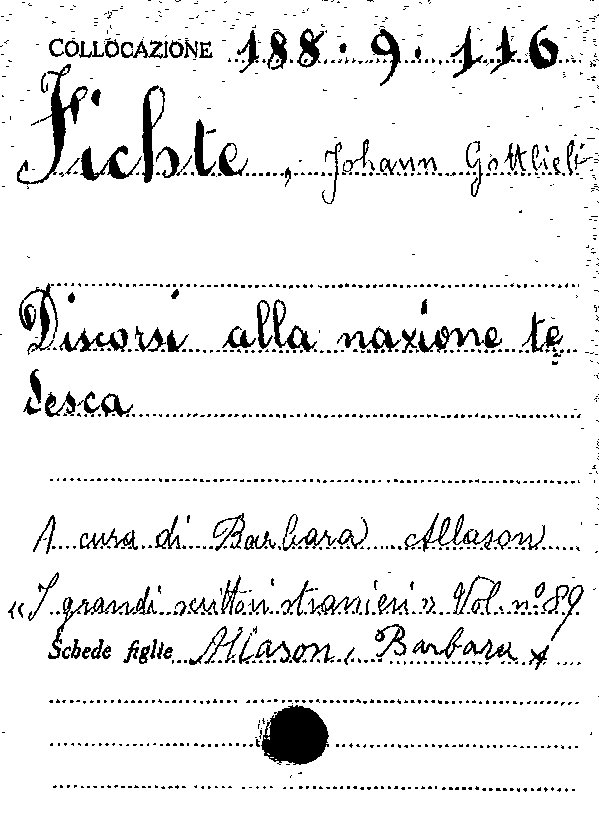 COLLOCAZIONE 188.9.116
Fichte, Johann Gottlieb
Discorsi alla nazione te
desca
A cura di Barbara Allason
«I grandi scrittori stranieri» Vol. n° 89
Schede figlie Allason, Barbara